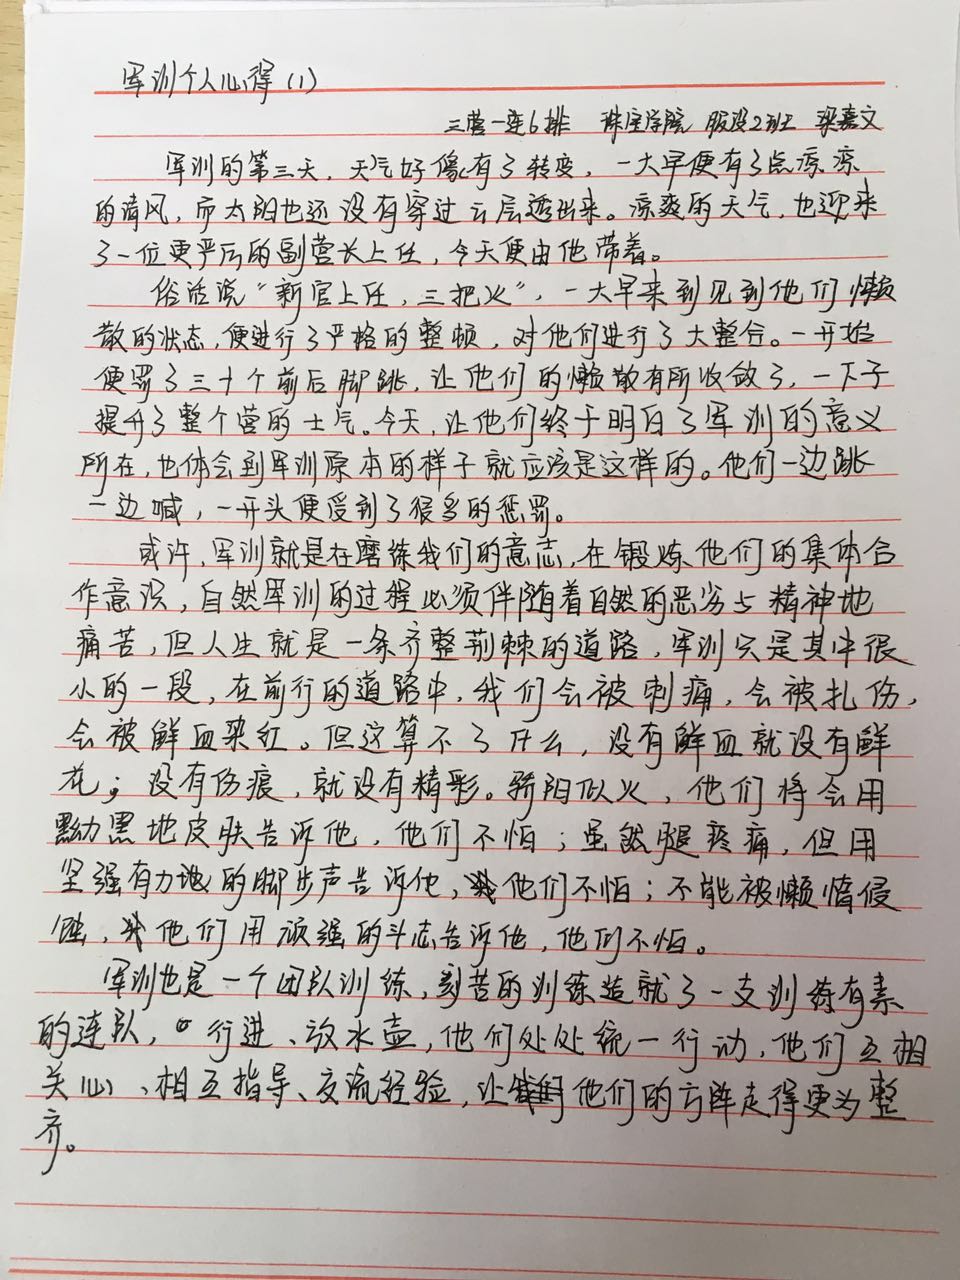 军训个人心得(1)
三营一连6排 珠宝学院 服设2班 梁嘉文
军训的第三天，天气好像有了转变，一大早便有了点凉凉
的清风，而太阳也还没有穿过云层透出来。凉爽的天气，也迎来
了一位更严厉的副营长上任，今天便由他带着。
俗话说“新官上任，三把火”，一大早来到见到他们懒
散的状态，便进行了严格的整顿，对他们进行了大整合。一开始
便罚了三十个前后脚跳，让他们的懒散有所收敛了，一下子
提升了整个营的士气。今天，让他们终于明白了军训的意义
所在，也体会到军训原本的样子就应该是这样的。他们一边跳
一边喊，一开头便受到了很多的惩罚。
或许，军训就是在磨练我们的意志，在锻炼他们的集体合
作意识，自然军训的过程必须伴随着自然的恶劣与精神地
痛苦，但人生就是一条齐整荆棘的道路，军训只是其中很
小的一段，在前行的道路中，我们会被刺痛，会被扎伤，
会被鲜血染红。但这算不了什么，没有鲜血就没有鲜
花；没有伤痕，就没有精彩。骄阳似火，他们将会用
黝黑地皮肤告诉他，他们不怕；虽然腿疼痛，但用
坚强有力地的脚步声告诉他，他们不怕；不能被懒惰侵
蚀，他们用顽强的斗志告诉他，他们不怕。
军训也是一个团队训练，刻苦的训练造就了一支训练有素
的连队，行进、放水壶，他们处处统一行动，他们互相
关心、相互指导、交流经验，让他们的方阵走得更为整
齐。